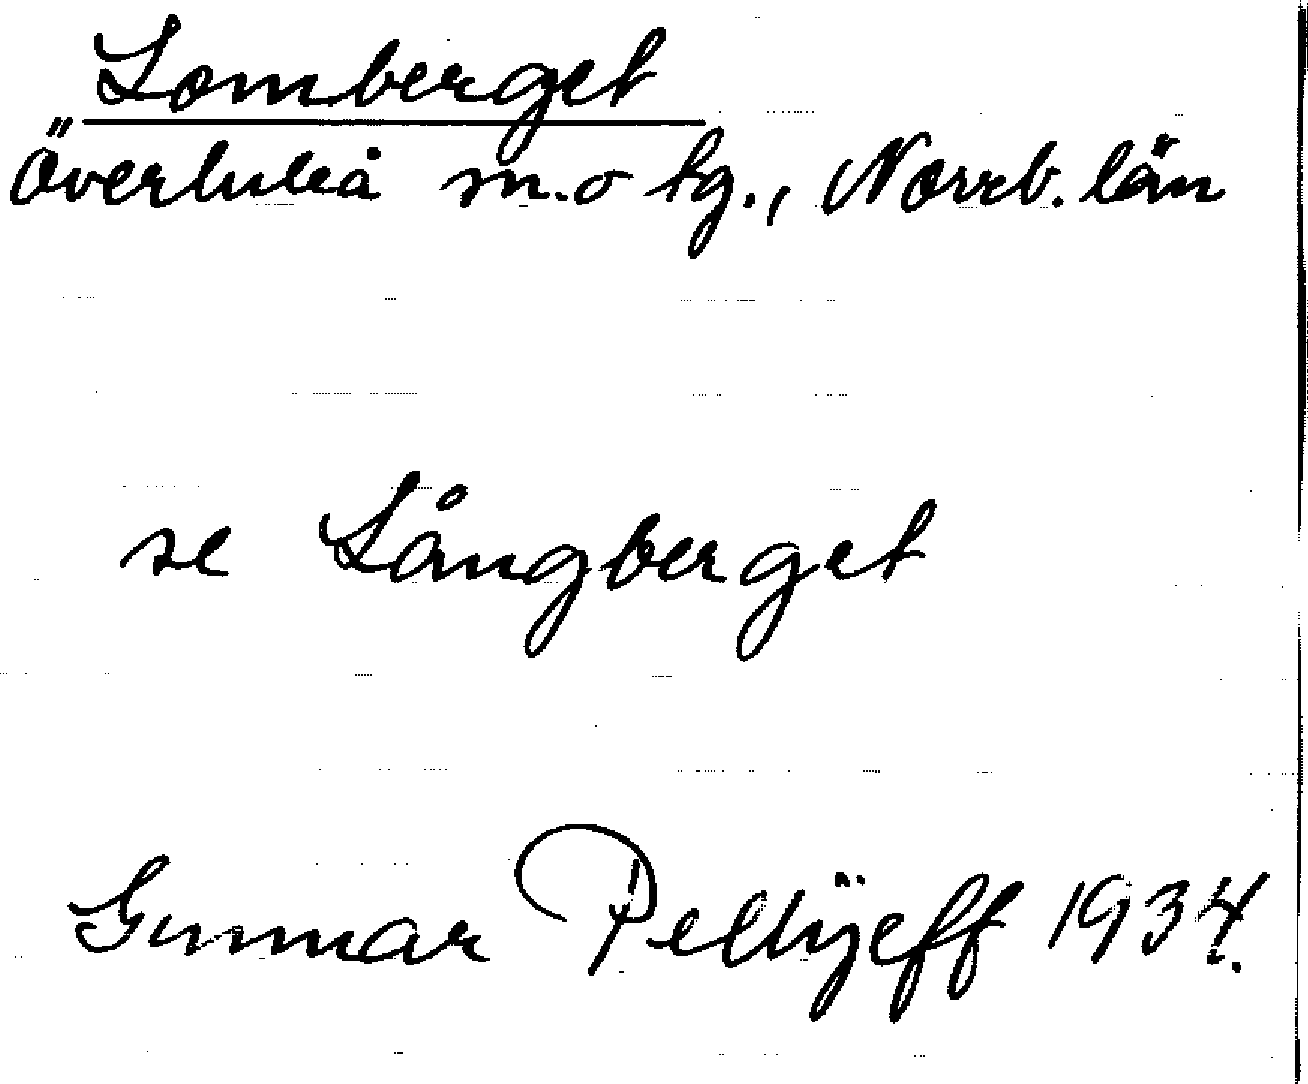 Lomberget
Överluleå sn. o tg., Norrb. län
se Långberget
Gunnar Pellijeff 1934.